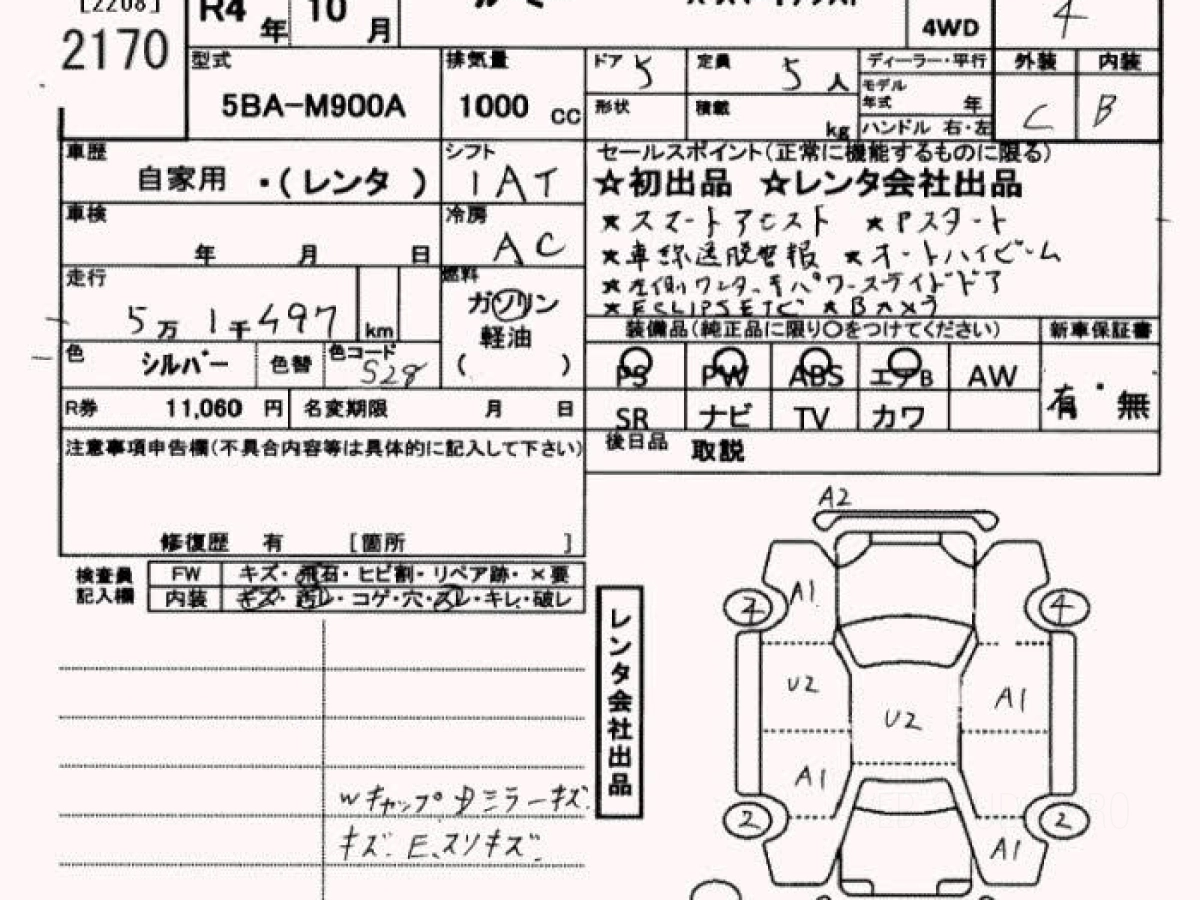 [2208]
R4 年 10 月
2170
4WD
4
型式
5BA-M900A
排気量
1000 cc
ドア 5
定員 5 人
形状
積載 kg
ディーラー・平行
モデル年式 年
ハンドル 右・左
外装 内装
C B
車歴
自家用 ・(レンタ )
シフト
IAT
車検
年 月 日
冷房
AC
走行
5万 1千497 km
燃料
ガソリン
軽油
( )
色
シルバー
色替
色コード
S28
R券 11,060 円
名変期限 月 日
セールスポイント(正常に機能するものに限る)
☆初出品 ☆レンタ会社出品
★スマートアシスト ★Pスタート
★車線逸脱警報 ★オートハイビーム
★左側ワンタッチパワースライドドア
★ECLIPSE ETC ★Bカメラ
装備品(純正品に限り○をつけてください)
新車保証書
PS PW ABS エアB AW
SR ナビ TV カワ
有・無
後日品 取説
注意事項申告欄(不具合内容等は具体的に記入して下さい)
修復歴 有 [箇所 ]
検査員記入欄
FW キズ・飛石・ヒビ割・リペア跡・×要
内装 キズ・汚レ・コゲ・穴・スレ・キレ・破レ
レンタ会社出品
A2
A1
4
U2
U2
A1
A1
2
2
A1
Wキャップ
ミラーキズ
キズ. E.スリキズ